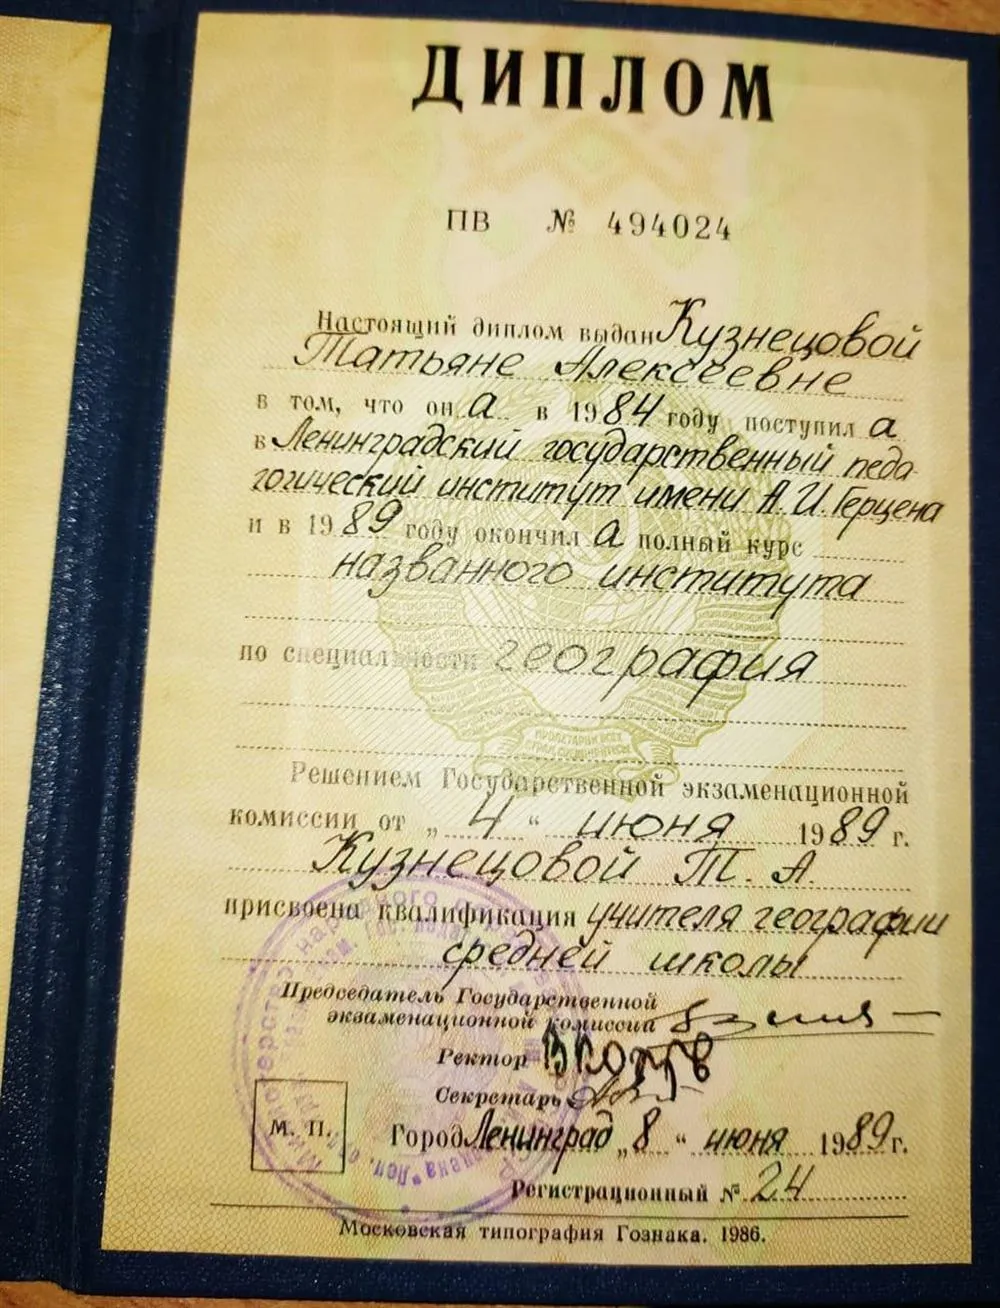 ДИПЛОМ
ПВ № 494024
Настоящий диплом выдан Кузнецовой
Татьяне Алексеевне
в том, что он а в 1984 году поступил а
в Ленинградский государственный педа-
гогический институт имени А.И.Герцена
и в 1989 году окончил а полный курс
названного института
по специальности география
ПРОЛЕТАРИИ ВСЕХ
СТРАН, СОЕДИНЯЙТЕСЬ
Решением Государственной экзаменационной
комиссии от „4“ июня 1989 г.
Кузнецовой Т. А.
присвоена квалификация учителя географии
средней школы
Председатель Государственной
экзаменационной комиссии
Ректор
Секретарь
М. П.
Город Ленинград „8“ июня 1989 г.
Регистрационный № 24
Московская типография Гознака. 1986.